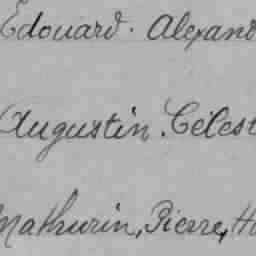 Edouard. Alexand
Augustin. Celest
Mathurin, Pierre, H